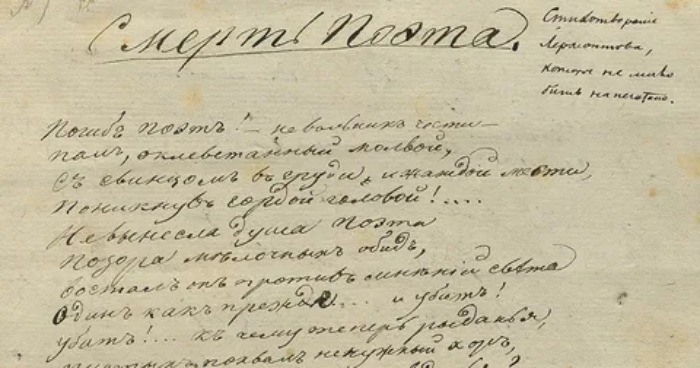 Смерть Поэта.
Стихотворение
Лермонтова,
которое не могло
быть напечатано.
Погибъ поэтъ! — невольникъ чести —
палъ, оклеветанный молвой,
Съ свинцомъ въ груди, и жаждой мести,
Поникнувъ гордой головой!....
Не вынесла душа поэта
Позора мѣлочныхъ обидъ,
возсталъ онъ противъ мнѣній свѣта
Одинъ какъ прежде.... и убитъ!
убитъ!.... къ чему теперь рыданья,
пустыхъ похвалъ ненужный хоръ,